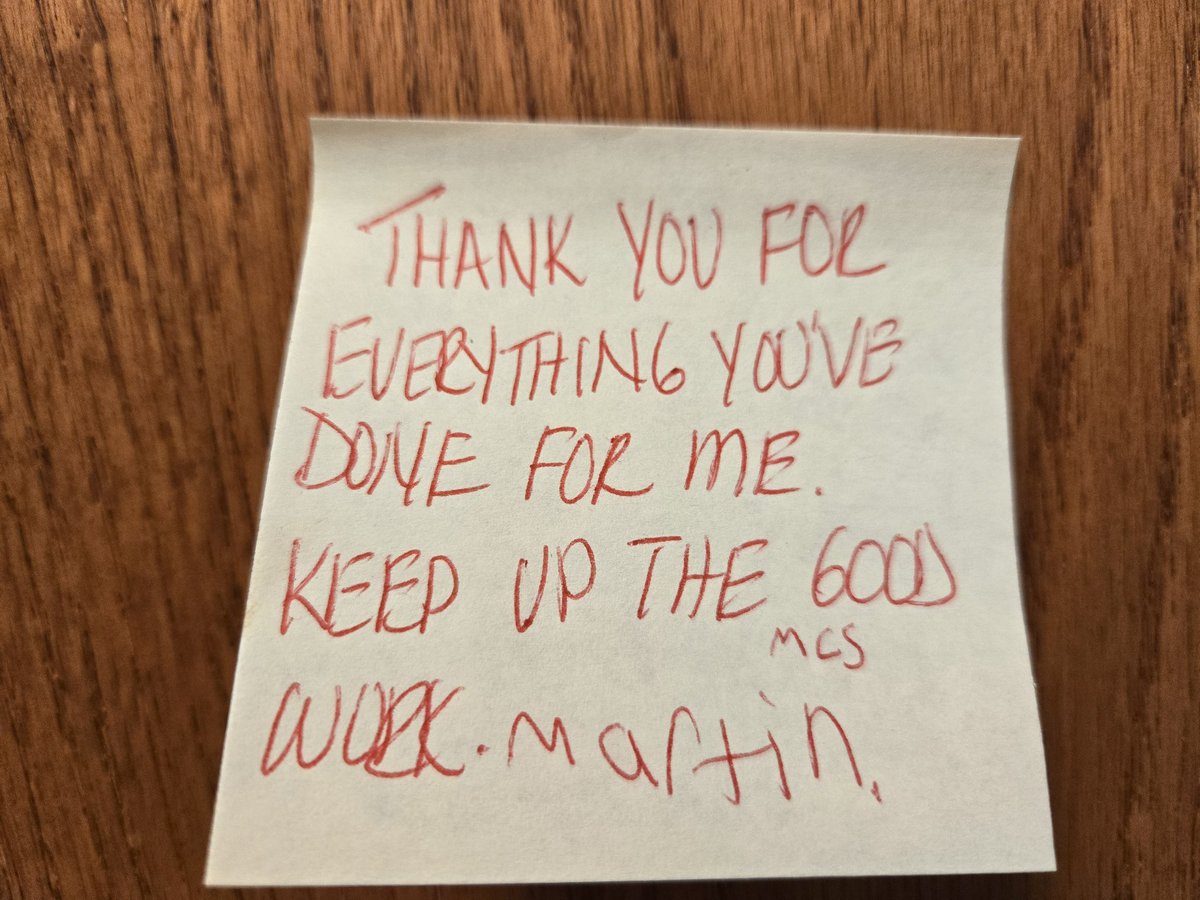 THANK YOU FOR
EVERYTHING YOU'VE
DONE FOR ME.
KEEP UP THE GOOD
MCS
WORK. Martin.